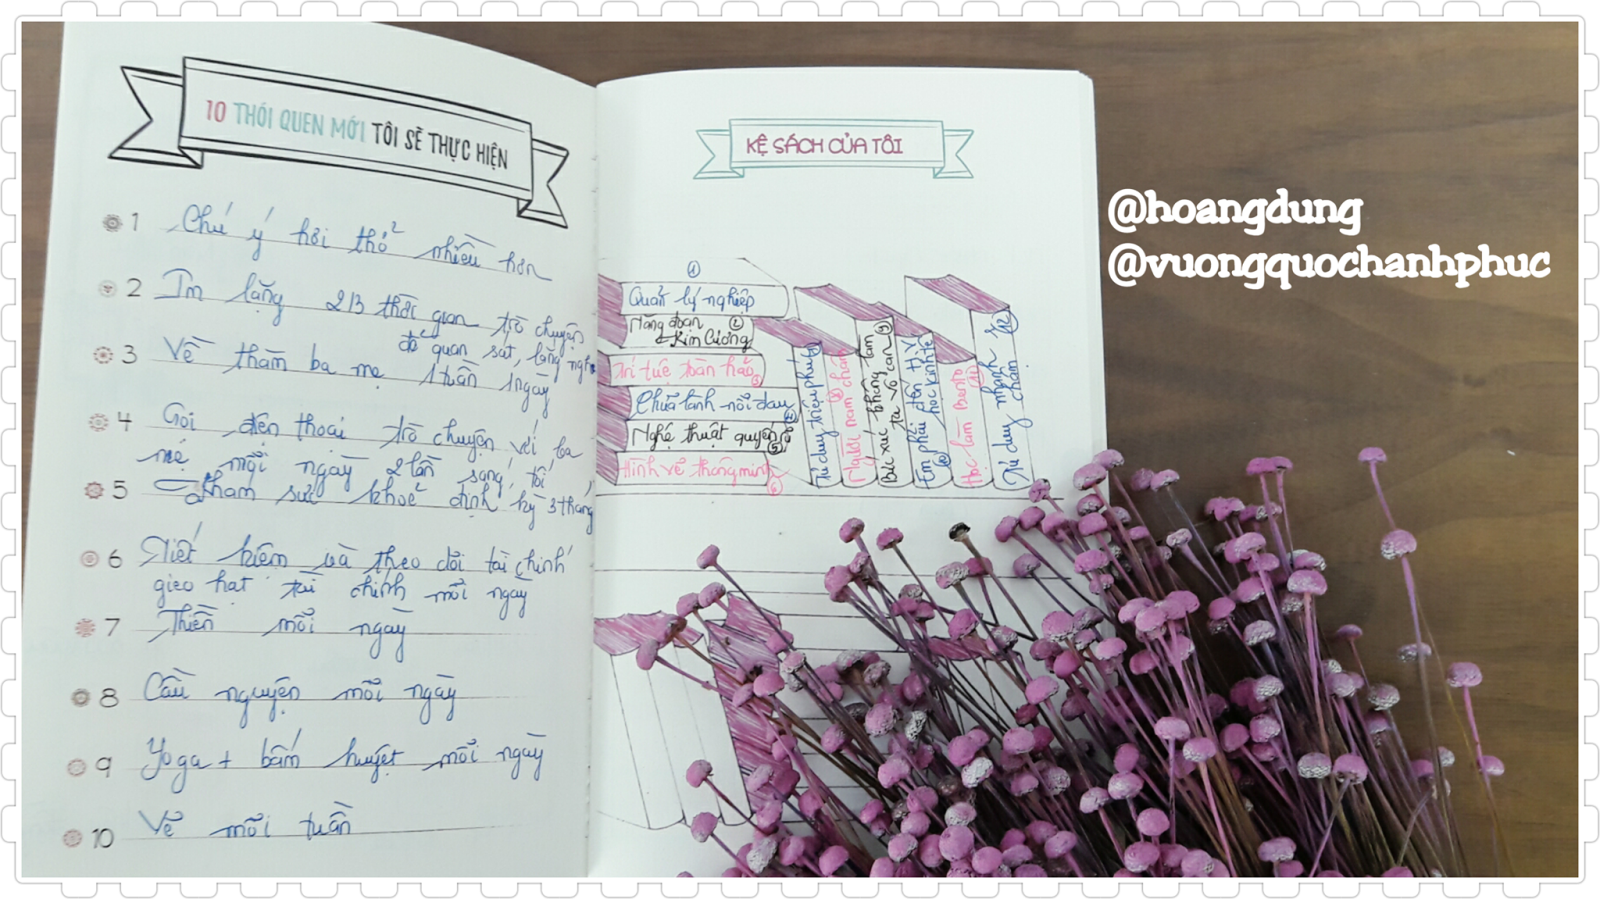 10 THÓI QUEN MỚI TÔI SẼ THỰC HIỆN
1 Chú ý hơi thở nhiều hơn
2 Im lặng 2/3 thời gian trò chuyện
để quan sát, lắng nghe
3 Về thăm ba mẹ 1 tuần 1 ngày
4 Gọi điện thoại trò chuyện với ba
mẹ mỗi ngày 2 lần sáng, tối
5 Khám sức khoẻ định kỳ 3 tháng
6 Tiết kiệm và theo dõi tài chính
gieo hạt tài chính mỗi ngày
7 Thiền mỗi ngày
8 Cầu nguyện mỗi ngày
9 Yoga + bấm huyệt mỗi ngày
10 Vẽ mỗi tuần
KỆ SÁCH CỦA TÔI
1
Quản lý nghiệp
Năng đoạn 2
Kim Cương
Trí tuệ hoàn hảo 3
Chữa lành nỗi đau
Nghệ thuật quyến rũ 5
Hình vẽ thông minh 6
Tư duy triệu phú
Người nam châm 8
Bức xúc không làm
ta vô can 9
Em phải đến H.V
học kinh tế 10
Học làm Bento 11
Tư duy nhanh &
chậm 12
@hoangdung
@vuongquochanhphuc